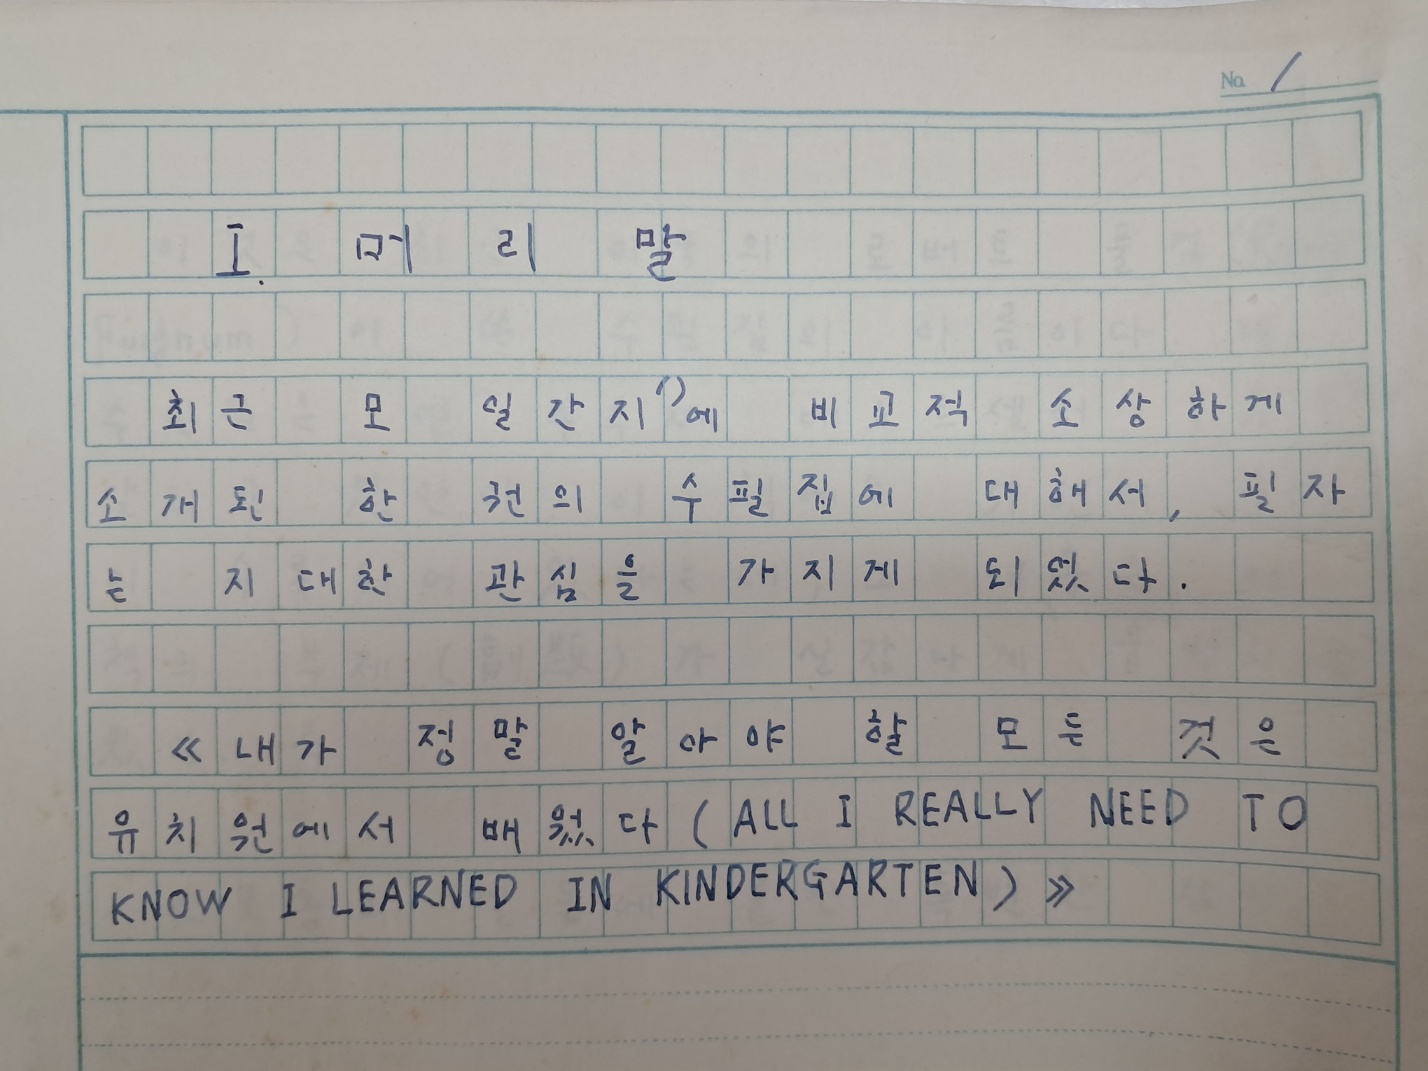 No. 1
I. 머리말
최근 모 일간지1)에 비교적 소상하게
소개된 한 권의 수필집에 대해서, 필자
는 지대한 관심을 가지게 되었다.
《내가 정말 알아야 할 모든 것은
유치원에서 배웠다(ALL I REALLY NEED TO
KNOW I LEARNED IN KINDERGARTEN)》